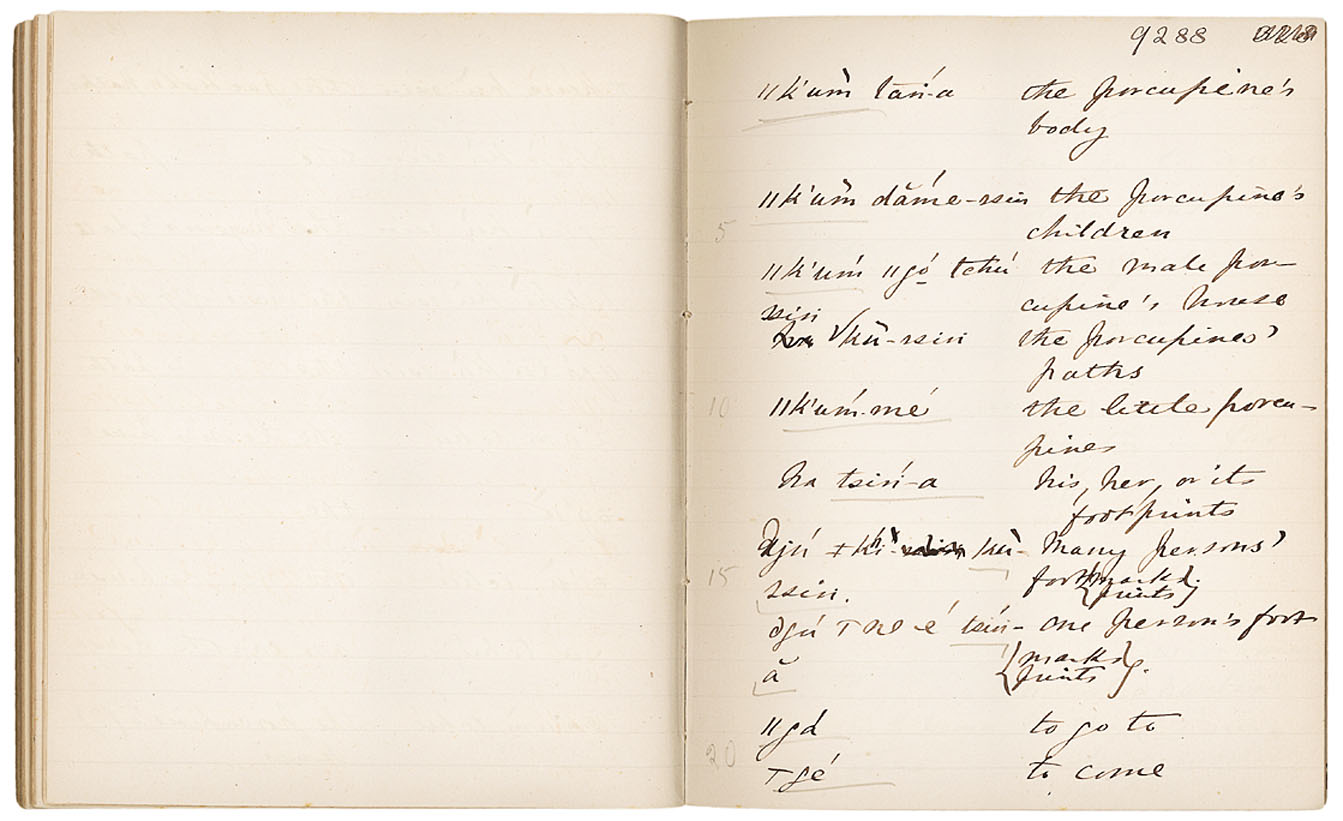 9288
ǁk'ùm̀ tań-a the porcupine's
body
ǁk'ùm̀ dắme-ssin the porcupine's
5 children
ǁk'uḿ ǁgó tchú the male por-
ssin cupine's house
√kū-ssin the porcupines'
paths
10 ǁk'uḿ-mé the little porcu-
pines
ha tsiń-a his, her, or its
footprints
djú ǂkí- kù- Many persons'
15 ssin. foot {marks
prints}.
djú T ne-é tsiń- one person's foot
ă {marks
prints}.
ǁgá to go to
20 T gé to come